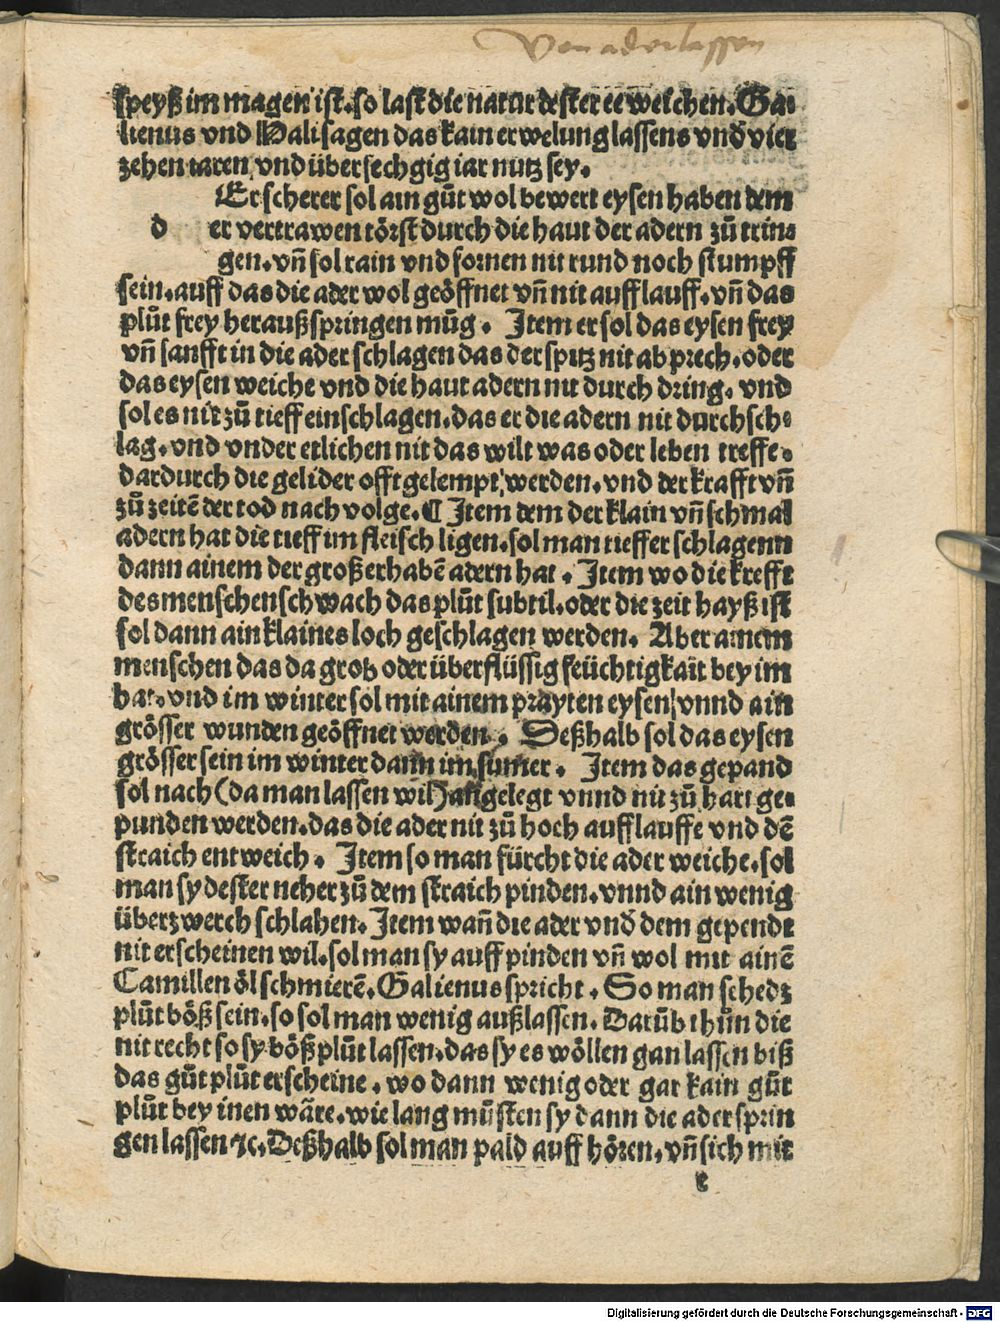 Von aderlassen
speyß im magen ist. so last die natur dester ee weichen. Ga⸗
lienus vnd Hali sagen das kain erwelung lassens vnď vier
zehen iaren vnd über sechgig iar nutz sey.
Er scherer sol ain gůt wol bewert eysen haben dem
d er vertrawen törst durch die haut der adern zů trin⸗
gen. vñ sol rain vnd fornen nit rund noch stumpff
sein. auff das die ader wol geöffnet vñ nit aufflauff. vñ das
plůt frey heraußspringen můg. Item er sol das eysen frey
vñ sanfft in die ader schlagen das der spitz nit abprech. oder
das eysen weiche vnd die haut adern nit durch dring. vnd
sol es nit zů tieff einschlagen. das er die adern nit durchsch⸗
lag. vnd vnder etlichen nit das wilt was oder leben treffe.
dardurch die gelider offt gelempt werden. vnd der krafft vñ
zů zeitē der tod nach volge. ¶ Item dem der klain vñ schmal
adern hat die tieff im fleisch ligen. sol man tieffer schlagenn
dann ainem der groß erhabē adern hat. Item wo die krefft
des menschen schwach das plůt subtil. oder die zeit hayß ist
sol dann ain klaines loch geschlagen werden. Aber ainem
menschen das da grob oder überflüssig feüchtigkait bey im
hat. vnd im winter sol mit ainem prayten eysen vnnd ain
grösser wunden geöffnet werden. Deßhalb sol das eysen
grösser sein im winter dann im sumer. Item das gepand
sol nach (da man lassen wil) angelegt vnnd nit zů hart ge⸗
punden werden. das die ader nit zů hoch aufflauffe vnd dē
straich entweich. Item so man fürcht die ader weiche. sol
man sy dester neher zů dem straich pinden. vnnd ain wenig
überzwerch schlahen. Item wañ die ader vnď dem gepende
nit erscheinen wil. sol man sy auff pinden vñ wol mit ainē
Camillen öl schmierē. Galienus spricht. So man schedz
plůt böß sein. so sol man wenig außlassen. Darůb thůn die
nit recht so sy böß plůt lassen. das sy es wöllen gan lassen biß
das gůt plůt erscheine. wo dann wenig oder gar kain gůt
plůt bey inen wäre. wie lang můsten sy dann die ader sprin
gen lassen ⁊c. Deßhalb sol man pald auff hören. vñ sich mit
c
Digitalisierung gefördert durch die Deutsche Forschungsgemeinschaft - DFG